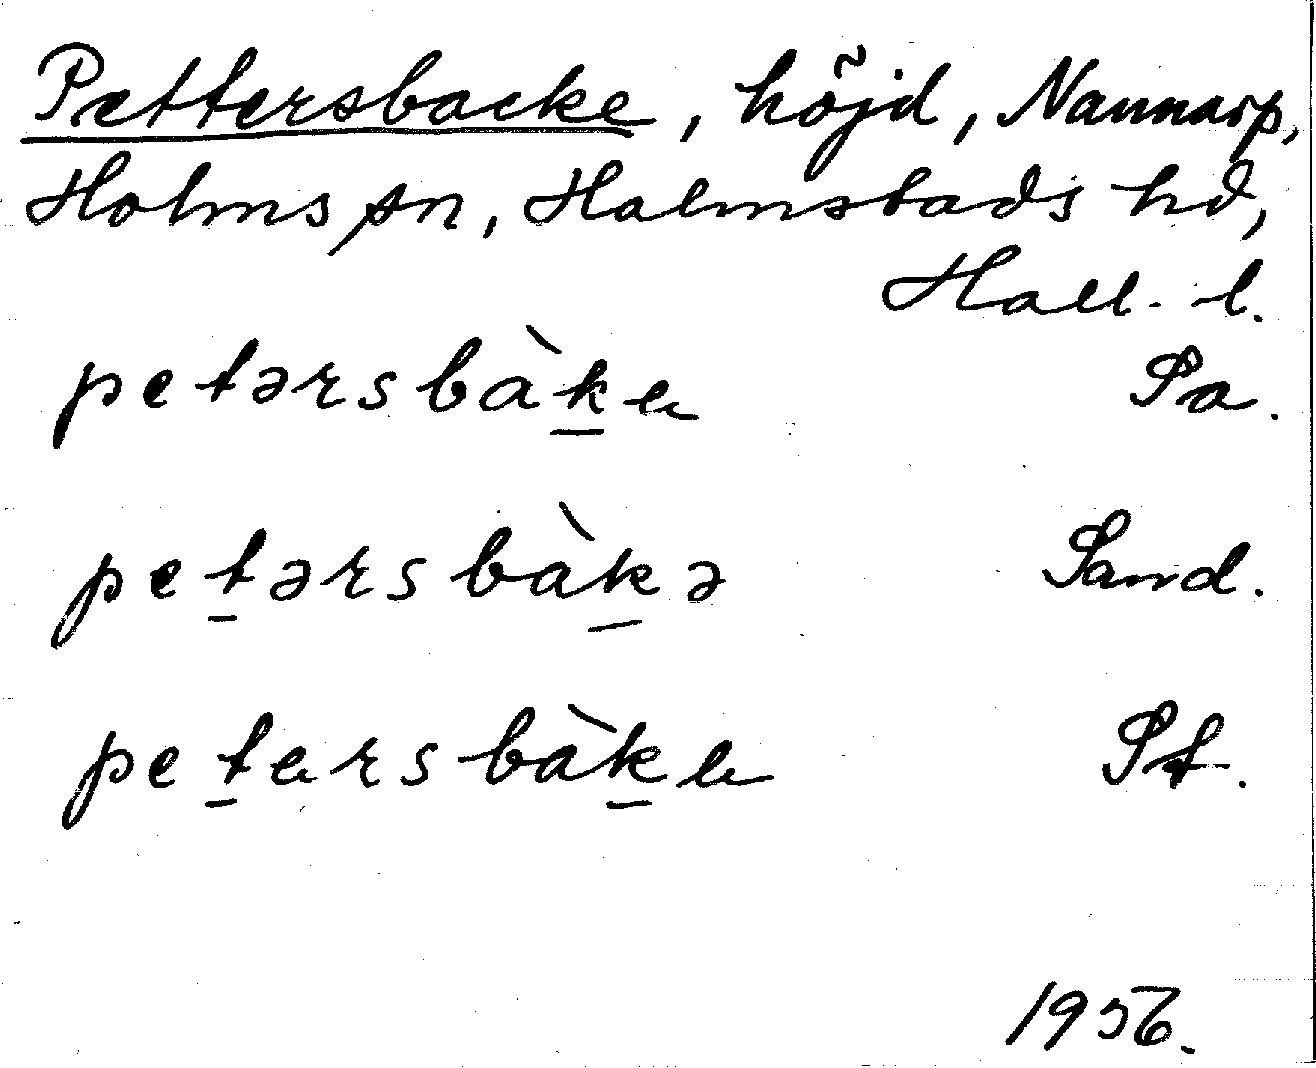 Pettersbacke, höjd, Nannarp,
Holms sn, Halmstads hd,
Hall. l.
petərsbàk̲e Pa.
pet̲ərsbàk̲ə Sand.
pet̲ersbàk̲e St.
1956.